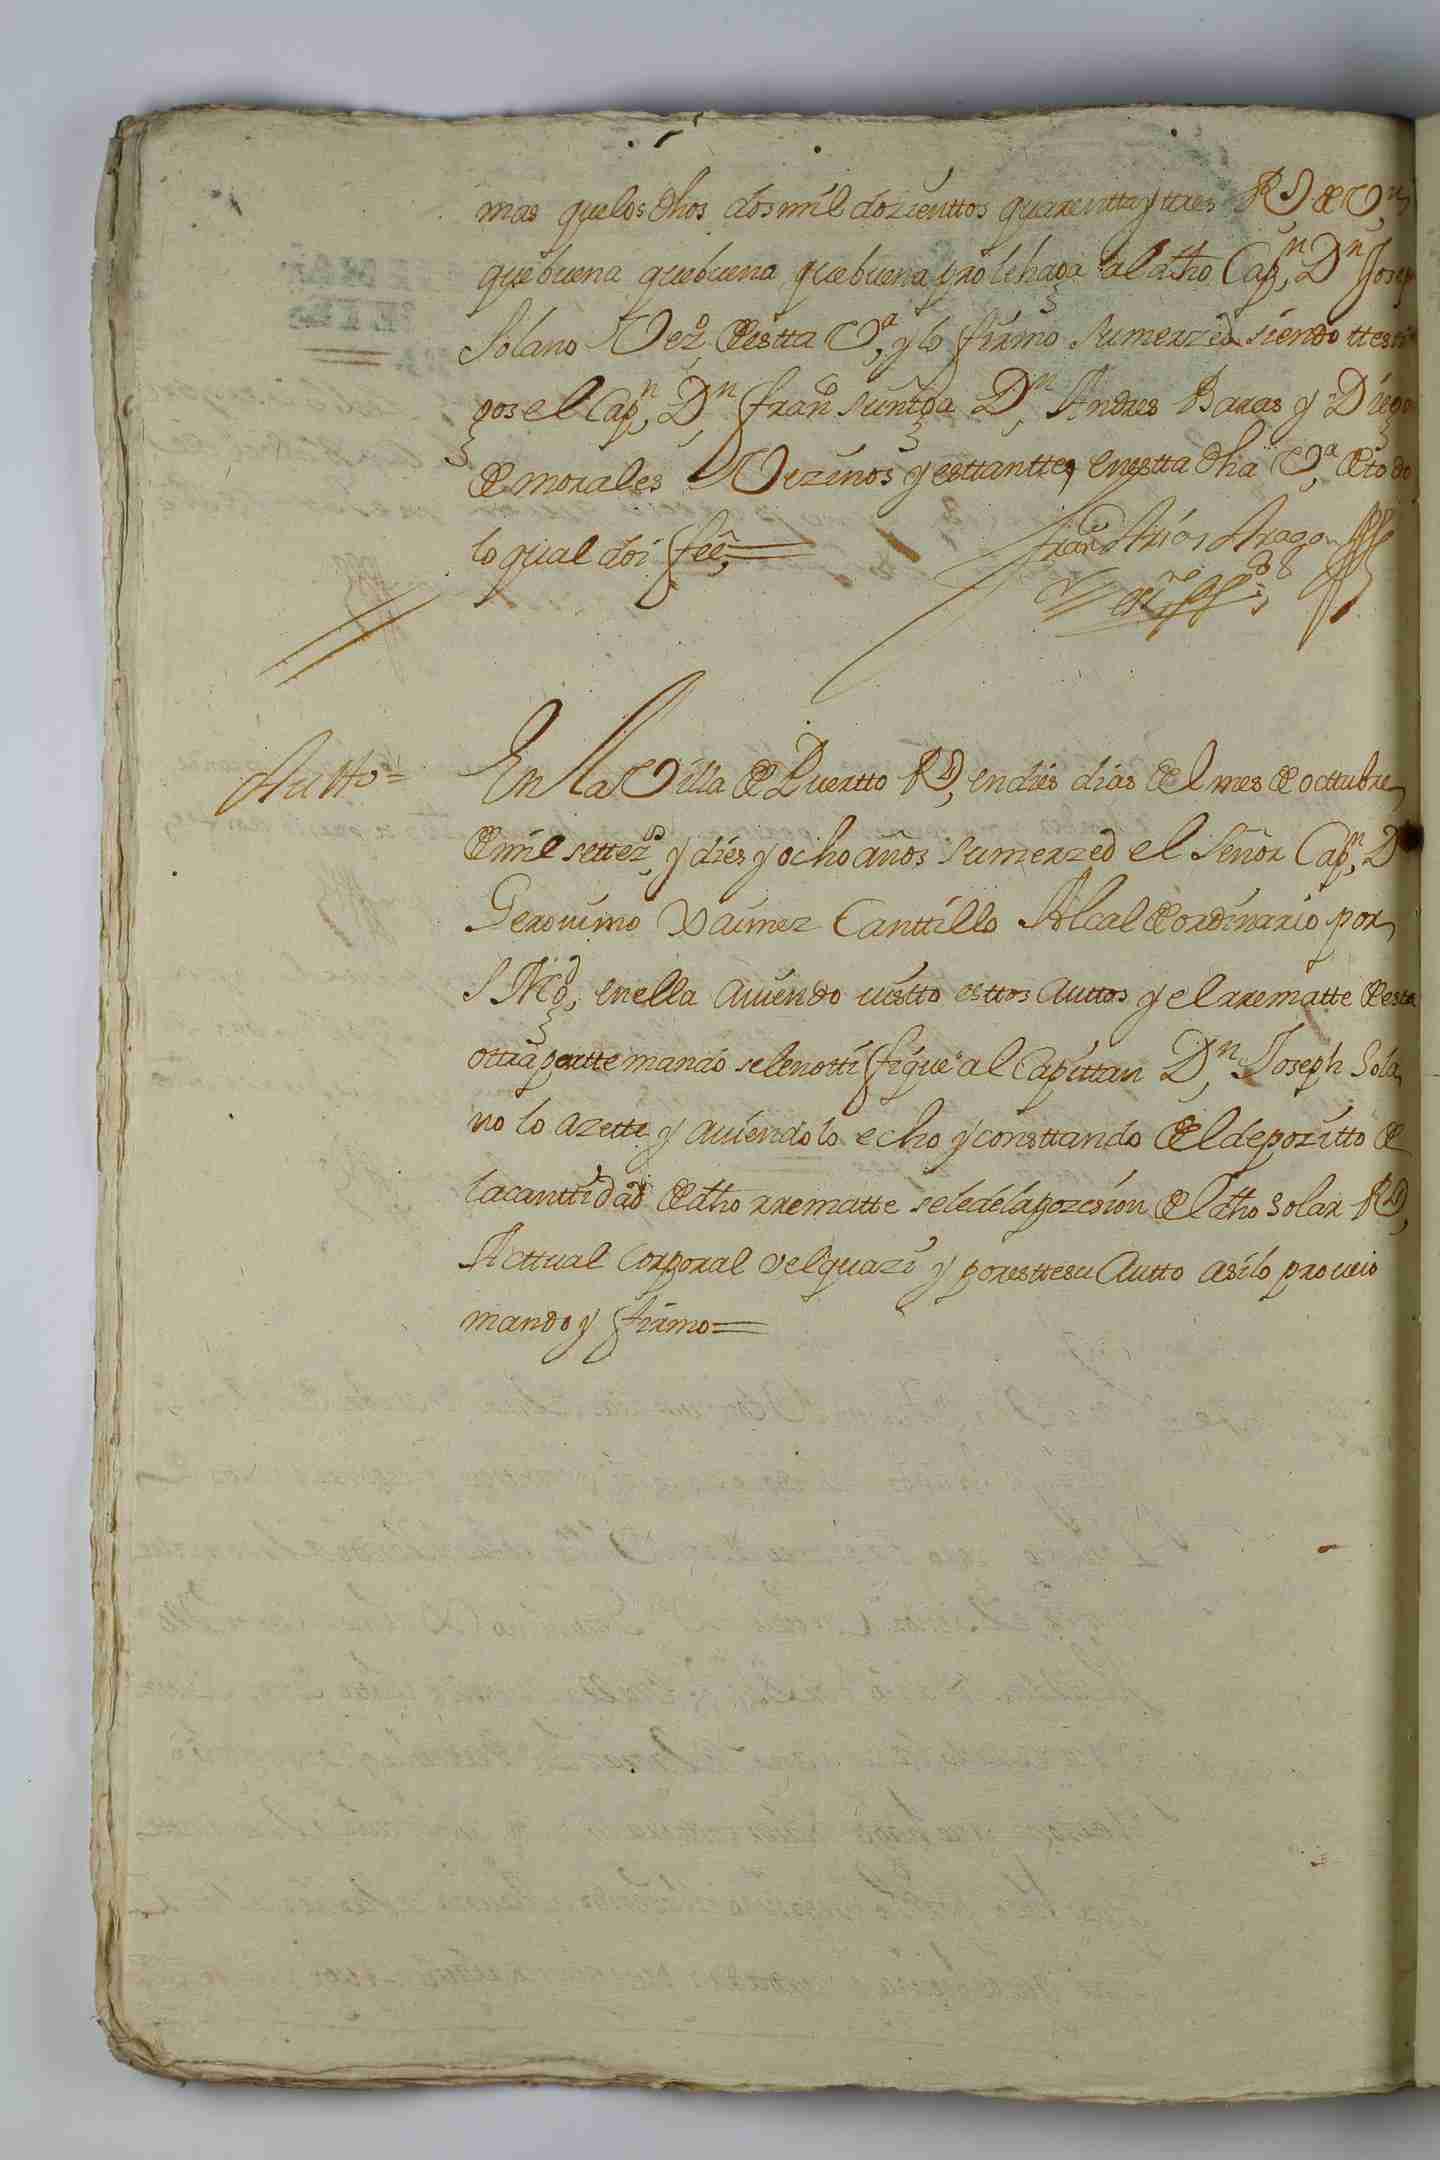 mas quelos dhos dosmil dozienttos quarentta y ttres Rs de Vn
quebuena quebuena quebuena pro lehaga al dho Capn Dn Josep
Solano Vezo destta Va y lo firmo sumerzed siendo ttesti
gos el Capn Dn Frano Dn Andres Baras y Diego
de morales Vezinos y esttanttes enestta dha Va de todo
lo qual doi fee=
Frano Arias Aragon
Autto=
En la Villa de Puertto Rl en dies dias del mes de octtubre
de mil settezos y dies y ocho años sumerzed el Señor Capn Dn
Geronimo Xaimez Canttillo Alcalde ordinario por
S Md en ella aviendo vistto esttos auttos y el rrematte de esta
ottra partte mandó sele notifique al Capittan Dn Joseph Sola
no lo azette y aviendolo echo y consttando del depozitto de
lacanttidad de dho rrematte sele dé la pozesion del dho solar Rl
Acttual corporal velquazi y poresttesu Autto asilo proveio
mando y firmo=